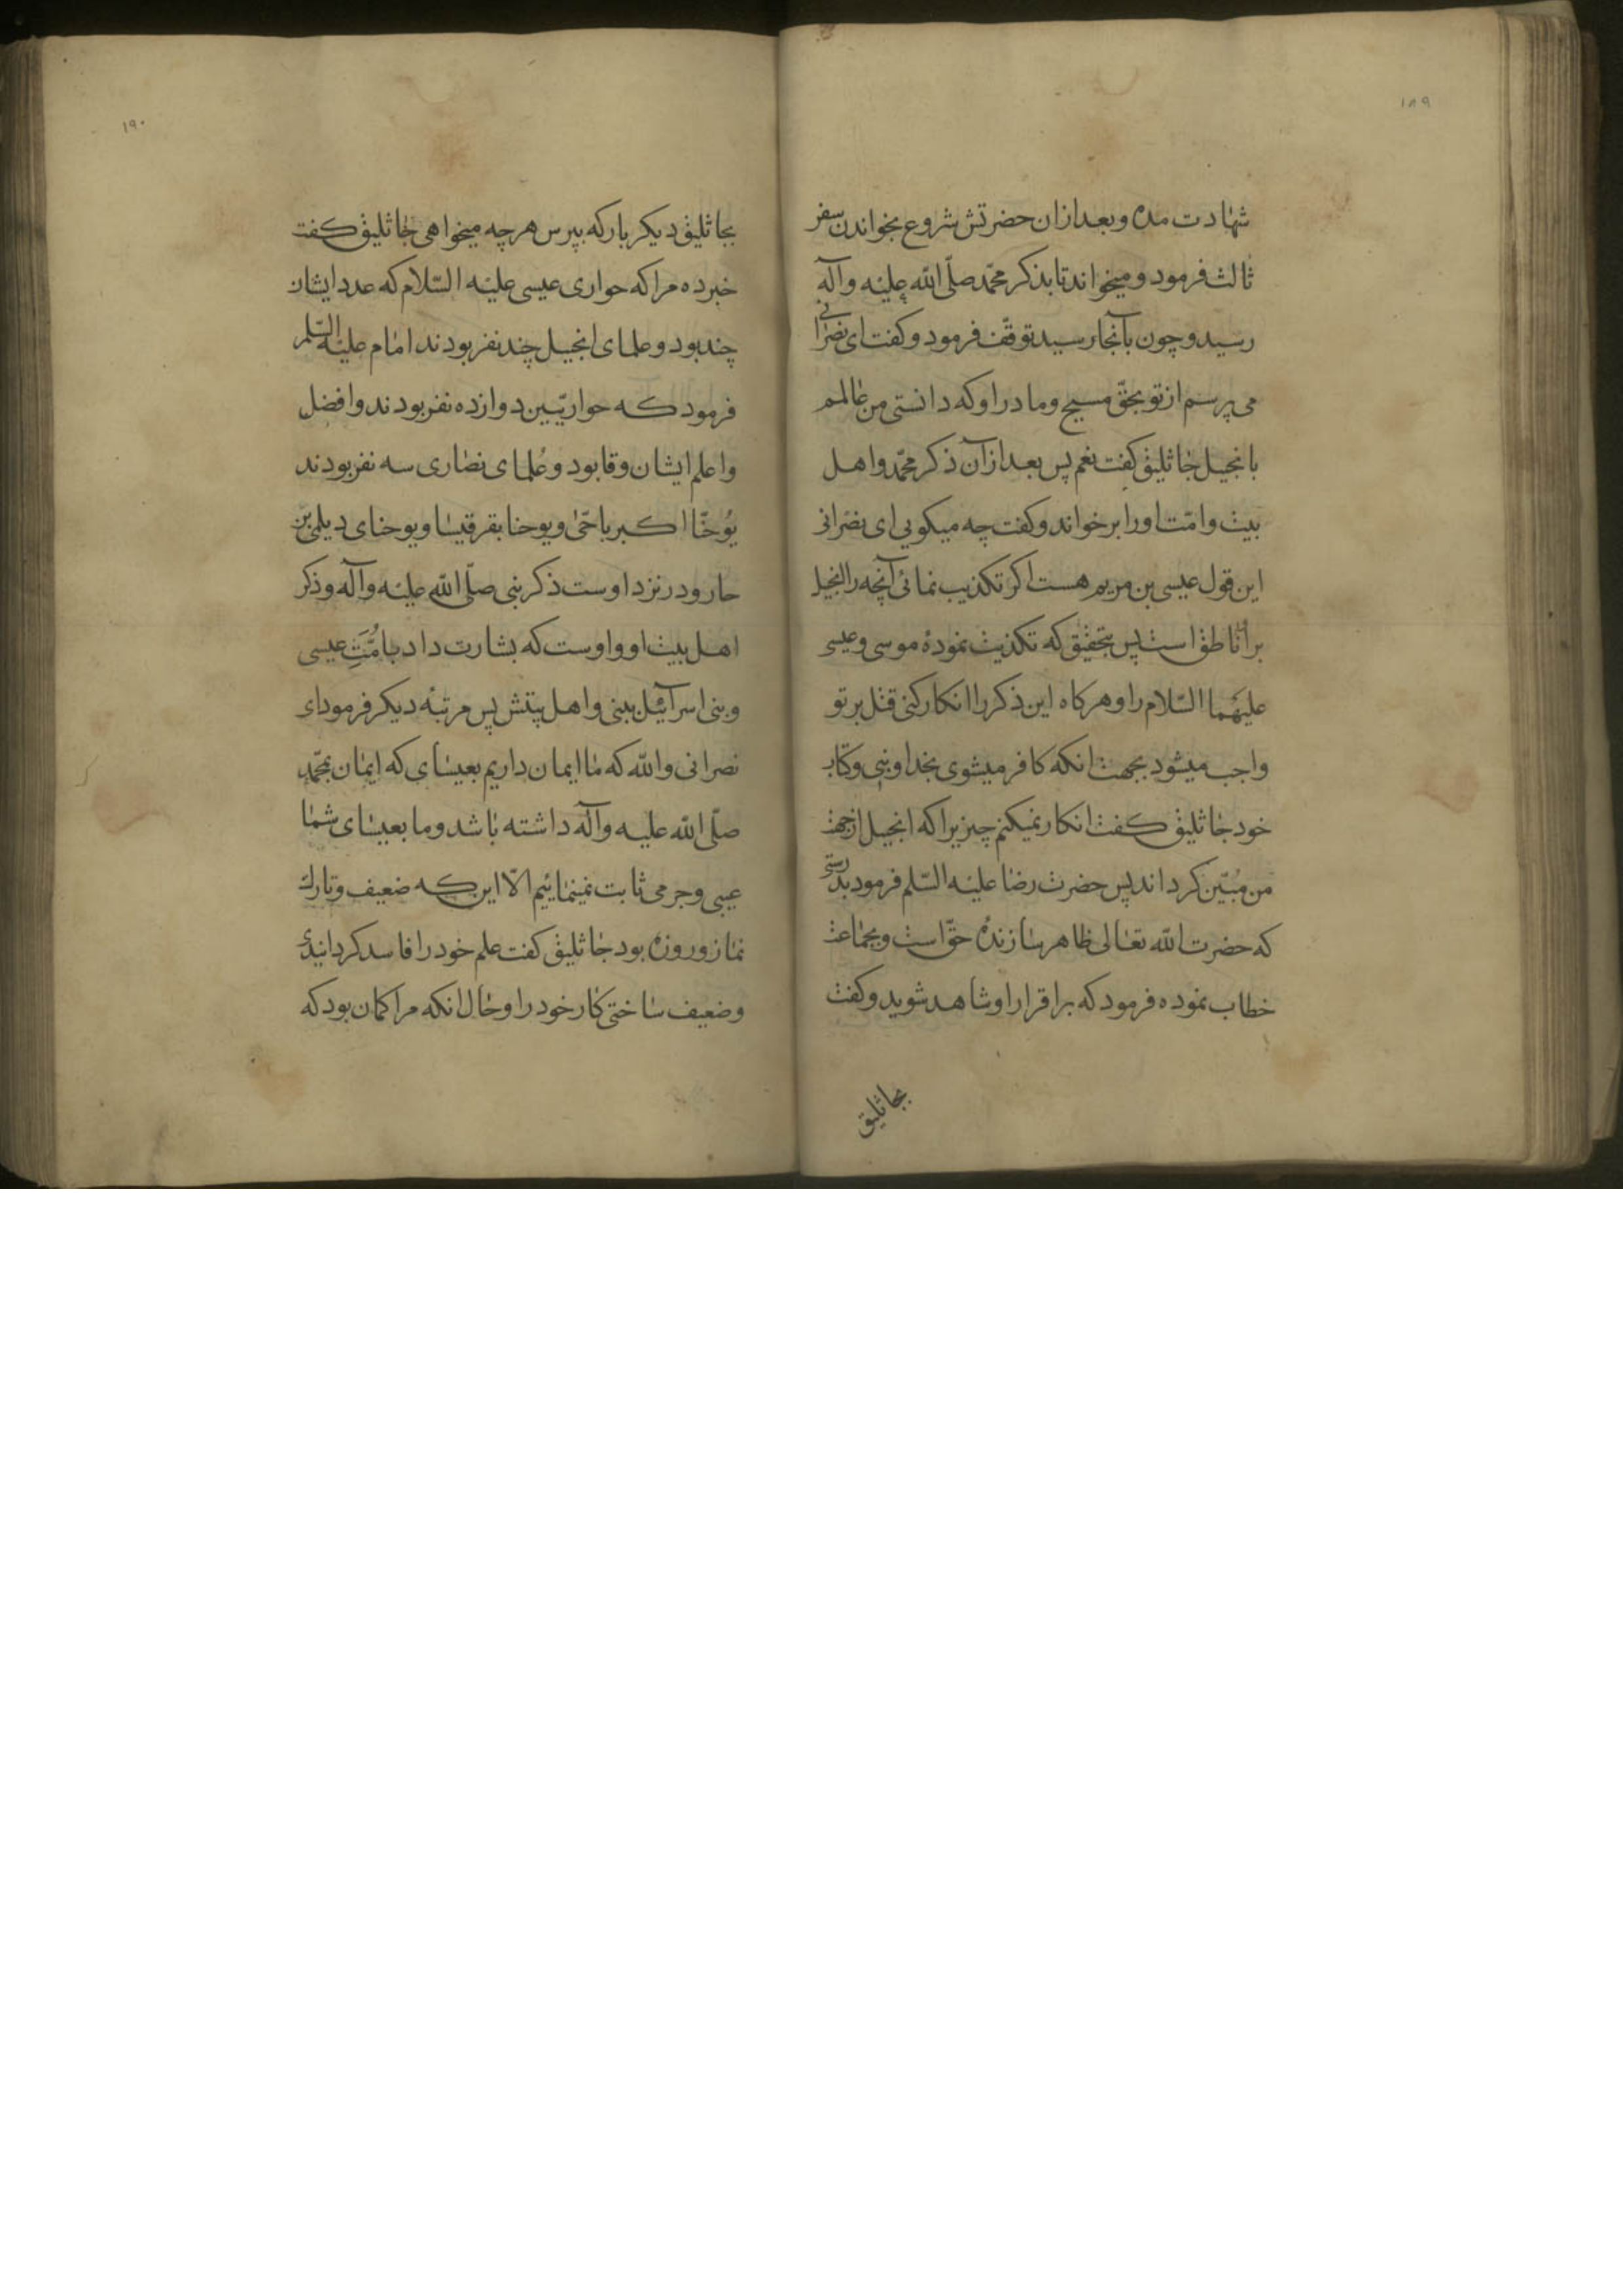 ۱۸۹
شهادت مده و بعد ازان حضرتش شروع بخواندن سفر
ثالث فرمود و میخواند تا بذکر محمّد صلّی اللّه علیه وآله
رسید و چون بآنجا رسید توقّف فرمود و کفت ای نصرانی
می پرسم از تو بحقّ مسیح و مادر او که دانستی من عالمم
بانجیل جاثلیق کفت نعم پس بعد ازآن ذکر محمّد و اهل
بیت و امّت او را بر خواند و کفت چه میکویی ای نصرانی
این قول عیسی بن مریم هست اکر تکذیب نمائی آنچه را انجیل
برآن ناطق است پس بتحقیق که تکذیب نمودهٔ موسی و عیسی
علیهما السّلام را و هرکاه این ذکر را انکار کنی قتل بر تو
واجب میشود بجهت انکه کافر میشوی بخدا و بنبی و کتاب
خود جاثلیق کفت انکار نمیکنم چیزیرا که انجیل ازجهت
من مبیّن کرداند پس حضرت رضا علیه السّلم فرمود بدرستی
که حضرت اللّه تعالی ظاهر سازندهٔ حقّ است و بجماعت
خطاب نموده فرمود که بر اقرار او شاهد شوید و کفت
بجاثلیق
۱۹۰
بجاثلیق دیکر بار که بپرس هرچه میخواهی جاثلیق کفت
خبر ده مرا که حواری عیسی علیه السّلام که عدد ایشان
چند بود و علمای انجیل چند نفر بودند امام علیه السّلم
فرمود که حواریّین دوازده نفر بودند و افضل
واعلم ایشان وقا بود و علمای نصاری سه نفر بودند
یُوحنّا اکبر باحّی و یوحنا بقرقیسا و یوحنای دیلمی بن
حار و در نزد اوست ذکر نبی صلّی اللّه علیه وآله و ذکر
اهل بیت او و اوست که بشارت داد بامُّتِ عیسی
و بنی اسرآئیل بنبی و اهل بیتش پس مرتبهٔ دیکر فرمود ای
نصرانی واللّه که ما ایمان داریم بعیسای که ایمان بمحمّد
صلّی اللّه علیه وآله داشته باشد و ما بعیسای شما
عیبی و جرمی ثابت نمینمائیم الّا این که ضعیف و تارک
نماز و روزه بود جاثلیق کفت علم خود را فاسد کردانیدی
و ضعیف ساختی کار خود را و حال انکه مرا کمان بود که